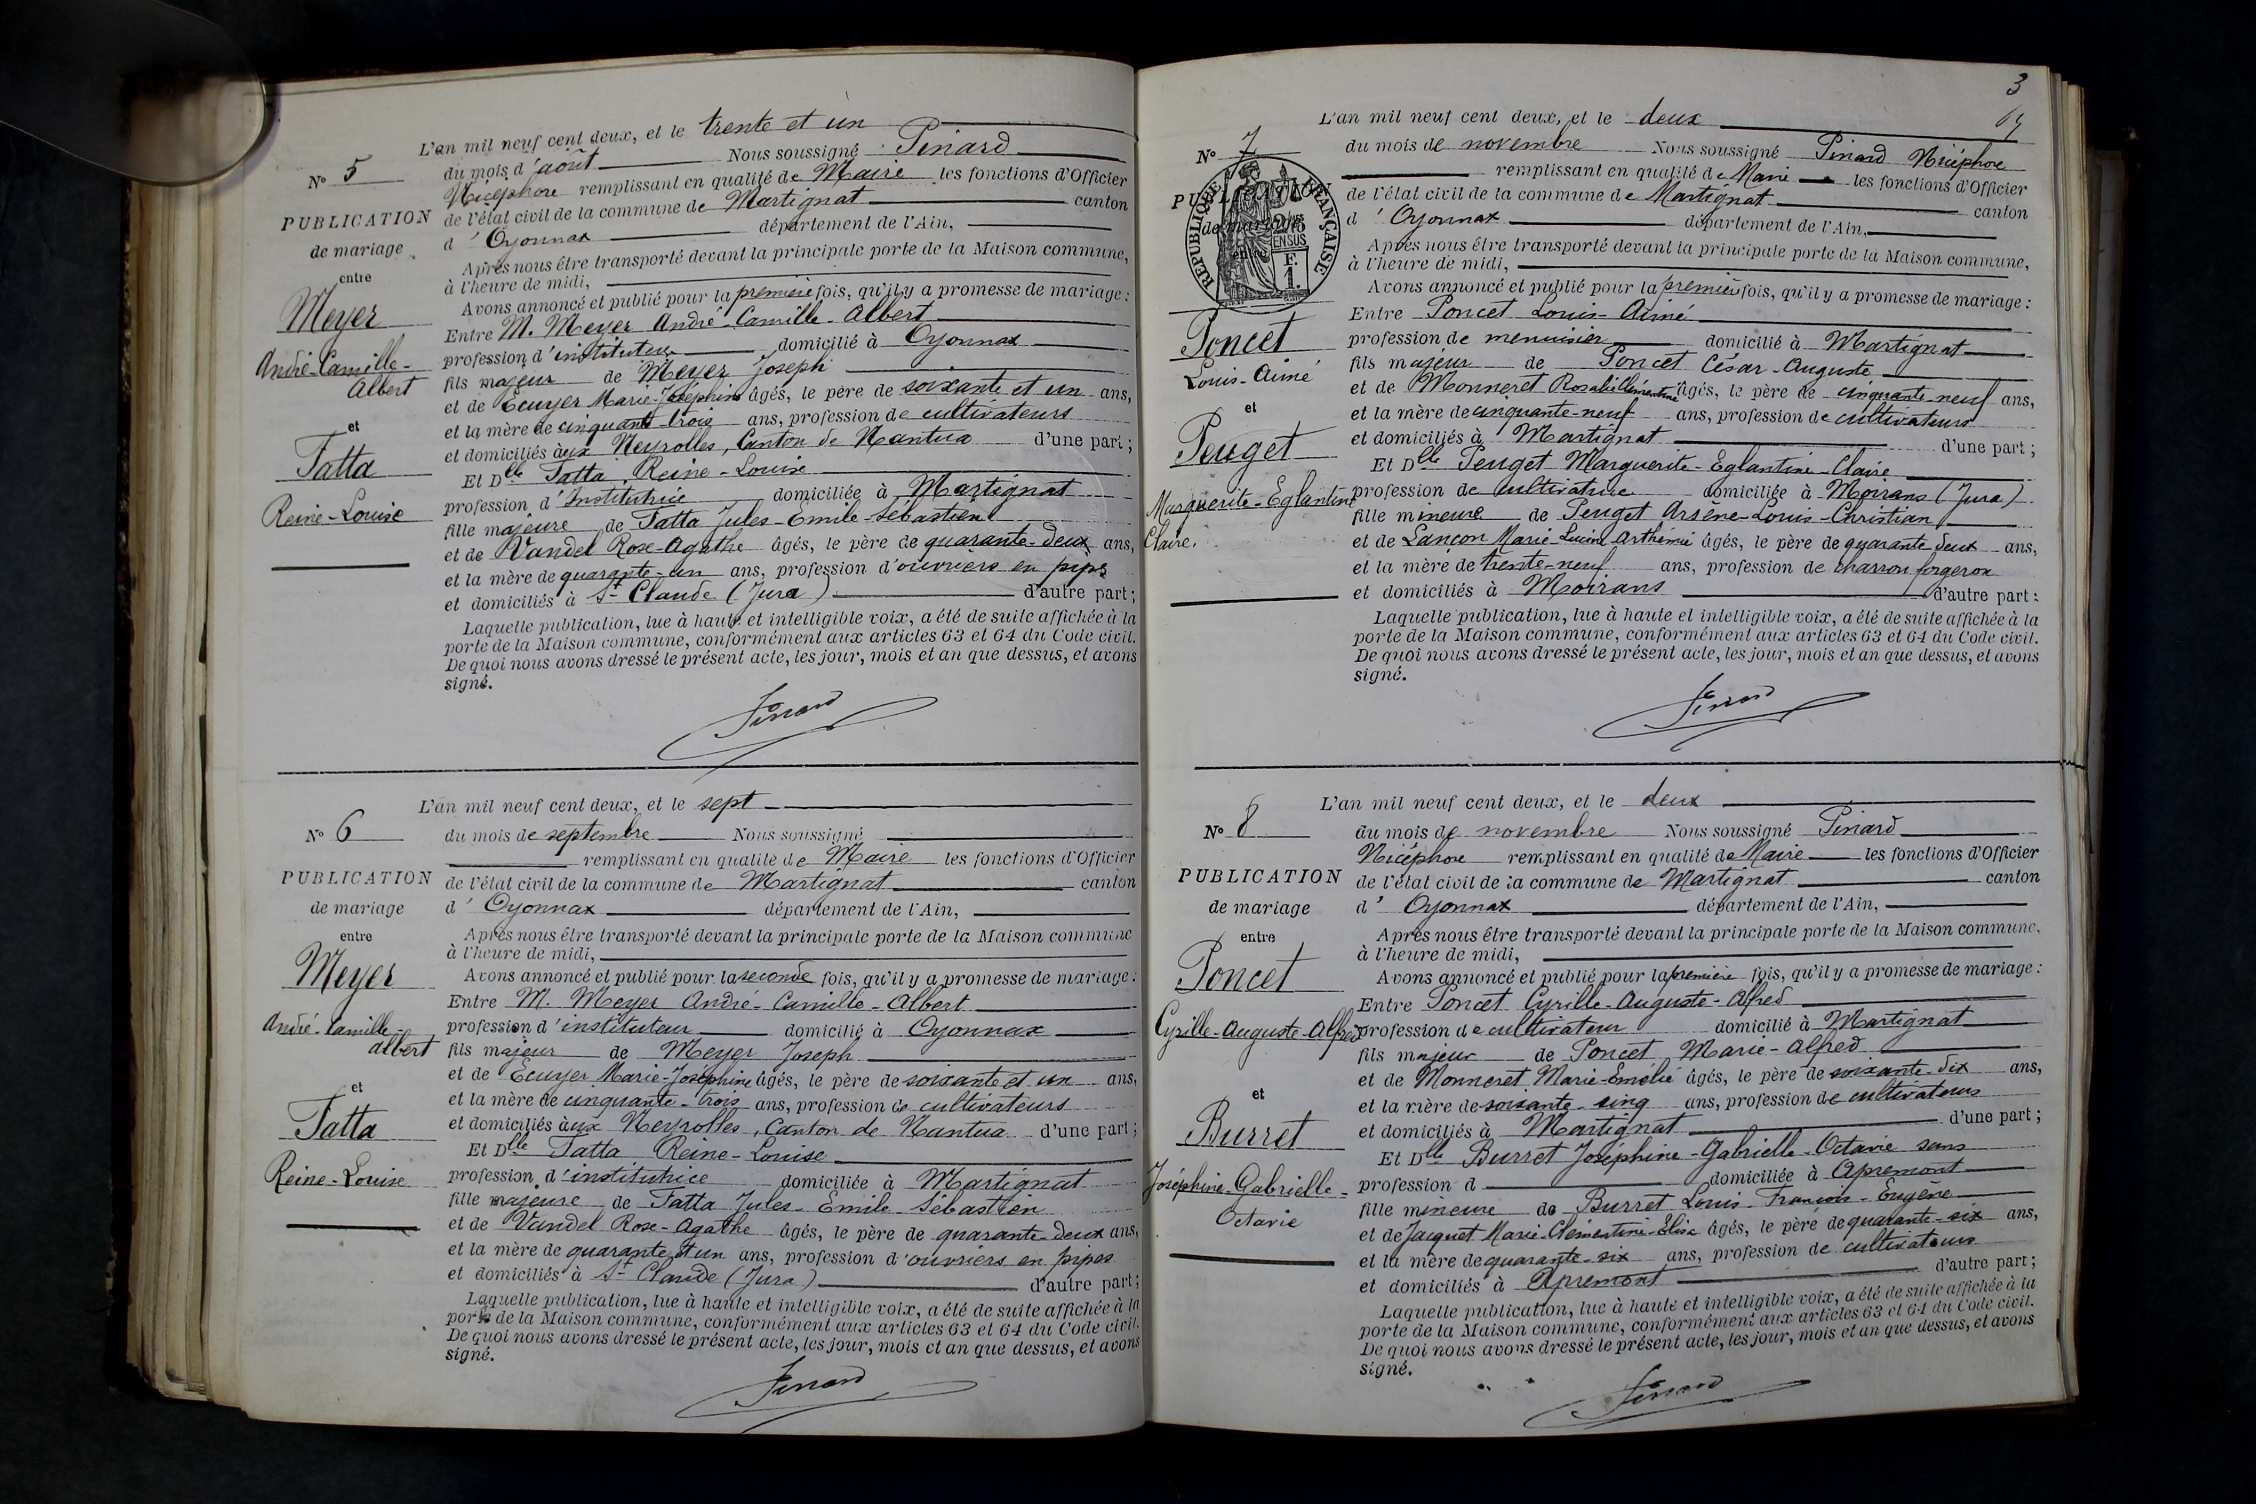 L'an mil neuf cent deux, et le trente et un
N° 5
du mois d'août Nous soussigné Pinard
Nicéphore remplissant en qualité de Maire les fonctions d'Officier
PUBLICATION
de l'état civil de la commune de Martignat canton
de mariage
d'Oyonnax département de l'Ain,
Après nous être transporté devant la principale porte de la Maison commune,
entre
à l'heure de midi,
Avons annoncé et publié pour la première fois, qu'il y a promesse de mariage :
Meyer
Entre M. Meyer André-Camille-Albert
profession d'instituteur domicilié à Oyonnax
André-Camille-
Albert
fils majeur de Meyer Joseph
et de Ecuyer Marie-Joséphine âgés, le père de soixante et un ans,
et
et la mère de cinquante trois ans, profession de cultivateurs
et domiciliés aux Neyrolles, Canton de Nantua d'une part ;
Tatta
Et Dlle Tatta Reine-Louise
profession d'Institutrice domiciliée à Martignat
Reine-Louise
fille majeure de Tatta Jules-Emile-Sébastien
et de Vandel Rose-Agathe âgés, le père de quarante-deux ans,
et la mère de quarante-un ans, profession d'ouvriers en pipes
et domiciliés à St Claude (Jura) d'autre part ;
Laquelle publication, lue à haute et intelligible voix, a été de suite affichée à la
porte de la Maison commune, conformément aux articles 63 et 64 du Code civil.
De quoi nous avons dressé le présent acte, les jour, mois et an que dessus, et avons
signé.
Pinard
L'an mil neuf cent deux, et le sept
N° 6
du mois de septembre Nous soussigné
remplissant en qualité de Maire les fonctions d'Officier
PUBLICATION
de l'état civil de la commune de Martignat canton
de mariage
d'Oyonnax département de l'Ain,
entre
Après nous être transporté devant la principale porte de la Maison commune
à l'heure de midi,
Meyer
Avons annoncé et publié pour la seconde fois, qu'il y a promesse de mariage :
Entre M. Meyer André-Camille-Albert
André-Camille-
albert
profession d'instituteur domicilié à Oyonnax
fils majeur de Meyer Joseph
et de Ecuyer Marie-Joséphine âgés, le père de soixante et un ans,
et
et la mère de cinquante-trois ans, profession de cultivateurs
Tatta
et domiciliés aux Neyrolles, Canton de Nantua d'une part ;
Et Dlle Tatta Reine-Louise
Reine-Louise
profession d'institutrice domiciliée à Martignat
fille majeure de Tatta Jules-Emile Sébastien
et de Vandel Rose-Agathe âgés, le père de quarante-deux ans,
et la mère de quarante et un ans, profession d'ouvriers en pipes
et domiciliés à St Claude (Jura) d'autre part ;
Laquelle publication, lue à haute et intelligible voix, a été de suite affichée à la
porte de la Maison commune, conformément aux articles 63 et 64 du Code civil.
De quoi nous avons dressé le présent acte, les jour, mois et an que dessus, et avons
signé.
Pinard
3
L'an mil neuf cent deux, et le deux
N° 7
du mois de novembre Nous soussigné Pinard Nicéphore
remplissant en qualité de Maire les fonctions d'Officier
PUBLICATION
de l'état civil de la commune de Martignat canton
de mariage
d'Oyonnax département de l'Ain,
RÉPUBLIQUE FRANÇAISE
EN SUS
F.
1.
entre
Après nous être transporté devant la principale porte de la Maison commune,
à l'heure de midi,
Avons annoncé et publié pour la première fois, qu'il y a promesse de mariage :
Poncet
Entre Poncet Louis-Aimé
profession de menuisier domicilié à Martignat
Louis-Aimé
fils majeur de Poncet César-Auguste
et de Monneret âgés, le père de cinquante-neuf ans,
et
et la mère de cinquante-neuf ans, profession de cultivateurs
et domiciliés à Martignat d'une part ;
Peuget
Et Dlle Peuget Marguerite-Eglantine-Claire
profession de cultivatrice domiciliée à Moirans (Jura)
Marguerite-Eglantine
Claire.
fille mineure de Peuget Arsène-Louis-Christian
et de Lançon Marie-Lucine-Arthémie âgés, le père de quarante deux ans,
et la mère de trente-neuf ans, profession de charron forgeron
et domiciliés à Moirans d'autre part :
Laquelle publication, lue à haute et intelligible voix, a été de suite affichée à la
porte de la Maison commune, conformément aux articles 63 et 64 du Code civil.
De quoi nous avons dressé le présent acte, les jour, mois et an que dessus, et avons
signé.
Pinard
L'an mil neuf cent deux, et le deux
N° 8
du mois de novembre Nous soussigné Pinard
Nicéphore remplissant en qualité de Maire les fonctions d'Officier
PUBLICATION
de l'état civil de la commune de Martignat canton
de mariage
d'Oyonnax département de l'Ain,
entre
Après nous être transporté devant la principale porte de la Maison commune,
à l'heure de midi,
Poncet
Avons annoncé et publié pour la première fois, qu'il y a promesse de mariage :
Entre Poncet Cyrille-Auguste-Alfred
Cyrille-Auguste-Alfred
profession de cultivateur domicilié à Martignat
fils majeur de Poncet Marie-Alfred
et de Monneret Marie-Emélie âgés, le père de soixante-dix ans,
et
et la mère de soixante-cinq ans, profession de cultivateurs
et domiciliés à Martignat d'une part ;
Burret
Et Dlle Burret Joséphine-Gabrielle-Octavie sans
Joséphine-Gabrielle-
Octavie
profession d domiciliée à Apremont
fille mineure de Burret Louis-François-Eugène
et de Jacquet Marie-Clémentine-Elisa âgés, le père de quarante-six ans,
et la mère de quarante-six ans, profession de cultivateurs
et domiciliés à Apremont d'autre part ;
Laquelle publication, lue à haute et intelligible voix, a été de suite affichée à la
porte de la Maison commune, conformément aux articles 63 et 64 du Code civil.
De quoi nous avons dressé le présent acte, les jour, mois et an que dessus, et avons
signé.
Pinard